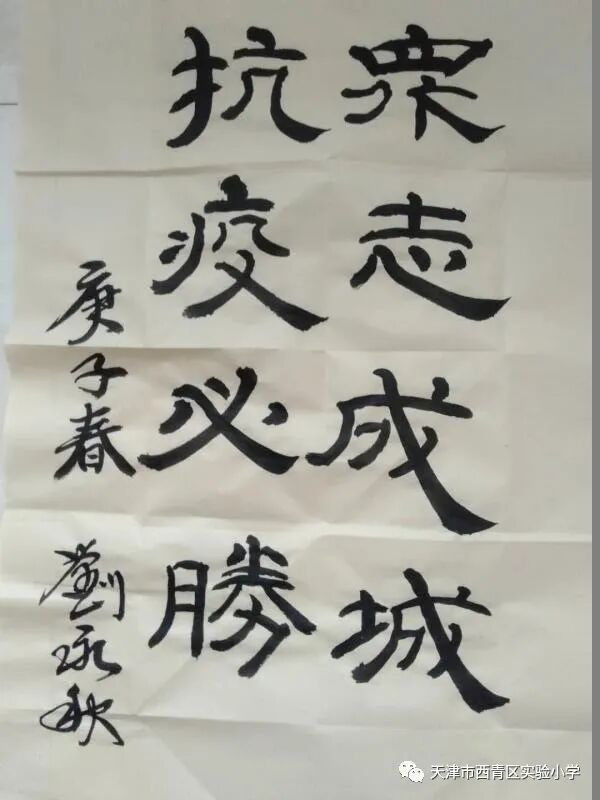 眾志成城
抗疫必勝
庚子春 劉詠秋
天津市西青区实验小学